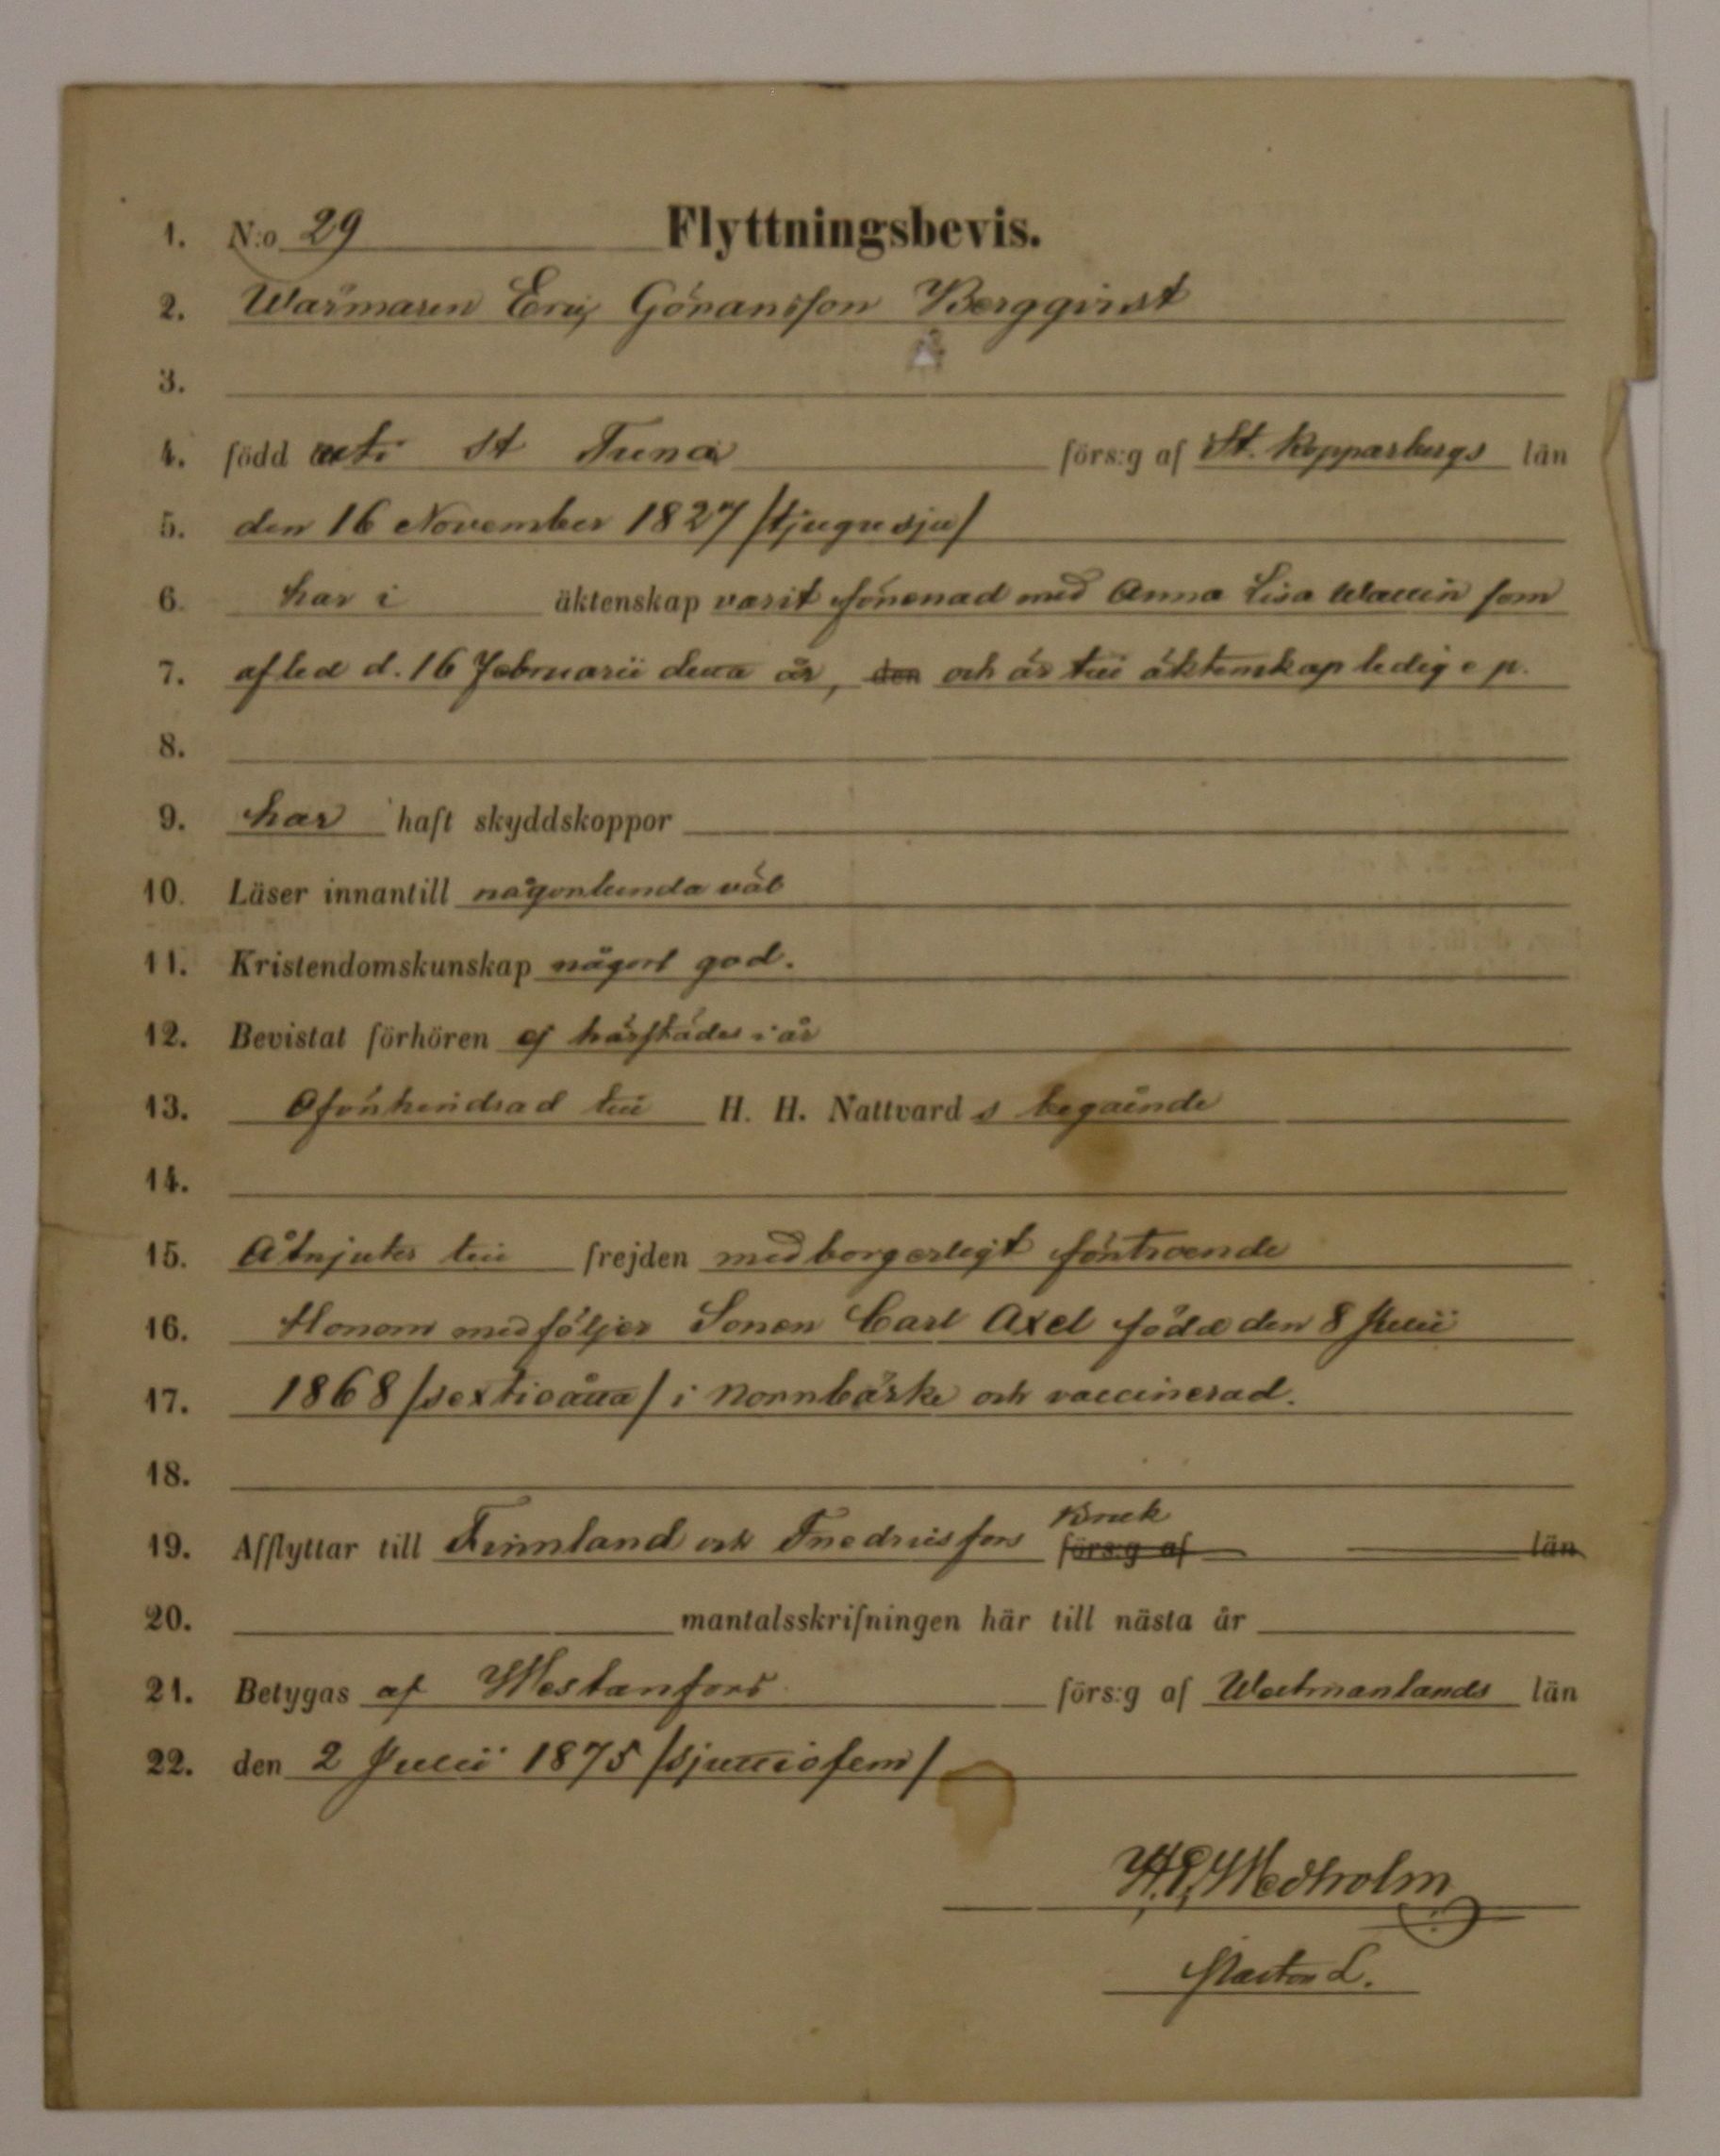 1. N:o 29 Flyttningsbevis.
2. Wärmaren Eric Göransson Bergqvist
3.
4. född uti St Tuna förs:g af St. Kopparbergs län
5. den 16 November 1827 /tjugusju/
6. har i äktenskap varit förenad med Anna Lisa Wallin som
7. afled d. 16 Februarii detta år, den och är till äktenskap ledig e p.
8.
9. har haft skyddskoppor
10. Läser innantill någorlunda väl
11. Kristendomskunskap någorl god.
12. Bevistat förhören ej härstädes i år
13. Oförhindrad till H. H. Nattvard s begående
14.
15. Åtnjuter till frejden medborgerligt förtroende
16. Honom medföljer Sonen Carl Axel född den 8 Julii
17. 1868 /sextioåtta/ i Norrbärke och vaccinerad.
18.
19. Afflyttar till Finnland och Fredriksfors Bruk förs:g af län
20. mantalsskrifningen här till nästa år
21. Betygas af Westanfors förs:g af Westmanlands län
22. den 2 Julii 1875 /sjuttiofem/
Pastor L.